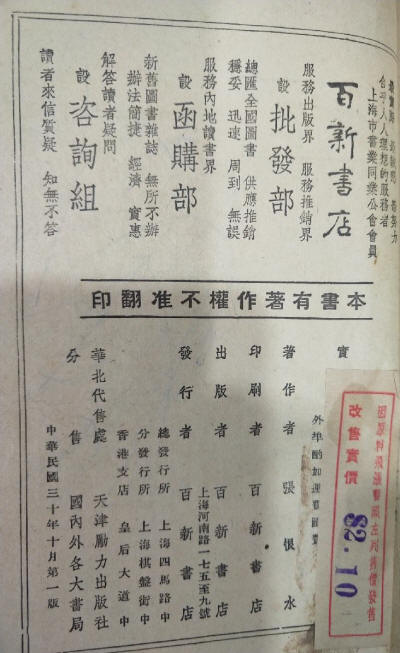 合乎人人理想的服務者
上海市書業同業公會會員
百新書店
服務出版界 服務推銷界
設 批發部
總匯全國圖書 供應推銷
穩妥 迅速 周到 無誤
服務內地讀書界
設 函購部
新舊圖書雜誌 無所不辦
辦法簡捷 經濟 實惠
解答讀者疑問
設 咨詢組
讀者來信質疑 知無不答
本書有著作權不准翻印
實
外埠酌加運費匯費
著作者 張恨水
印刷者 百新書店
出版者 百新書店
上海河南路一七五至九號
發行者 百新書店
總發行所 上海四馬路中
分發行所 上海棋盤街中
香港支店 皇后大道中
華北代售處 天津勵力出版社
分售 國內外各大書局
中華民國三十年十月第一版
因原料飛漲暫照左列售價發售
改售實價
$2.10